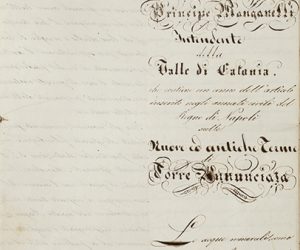 Principe Manganelli
Intendente
della
Valle di Catania.
che contiene un cenno dell'articolo
inserito negli annali civili del
Regno di Napoli
sulle
Nuove ed antiche Terme
di
Torre Annunciata
Le acque